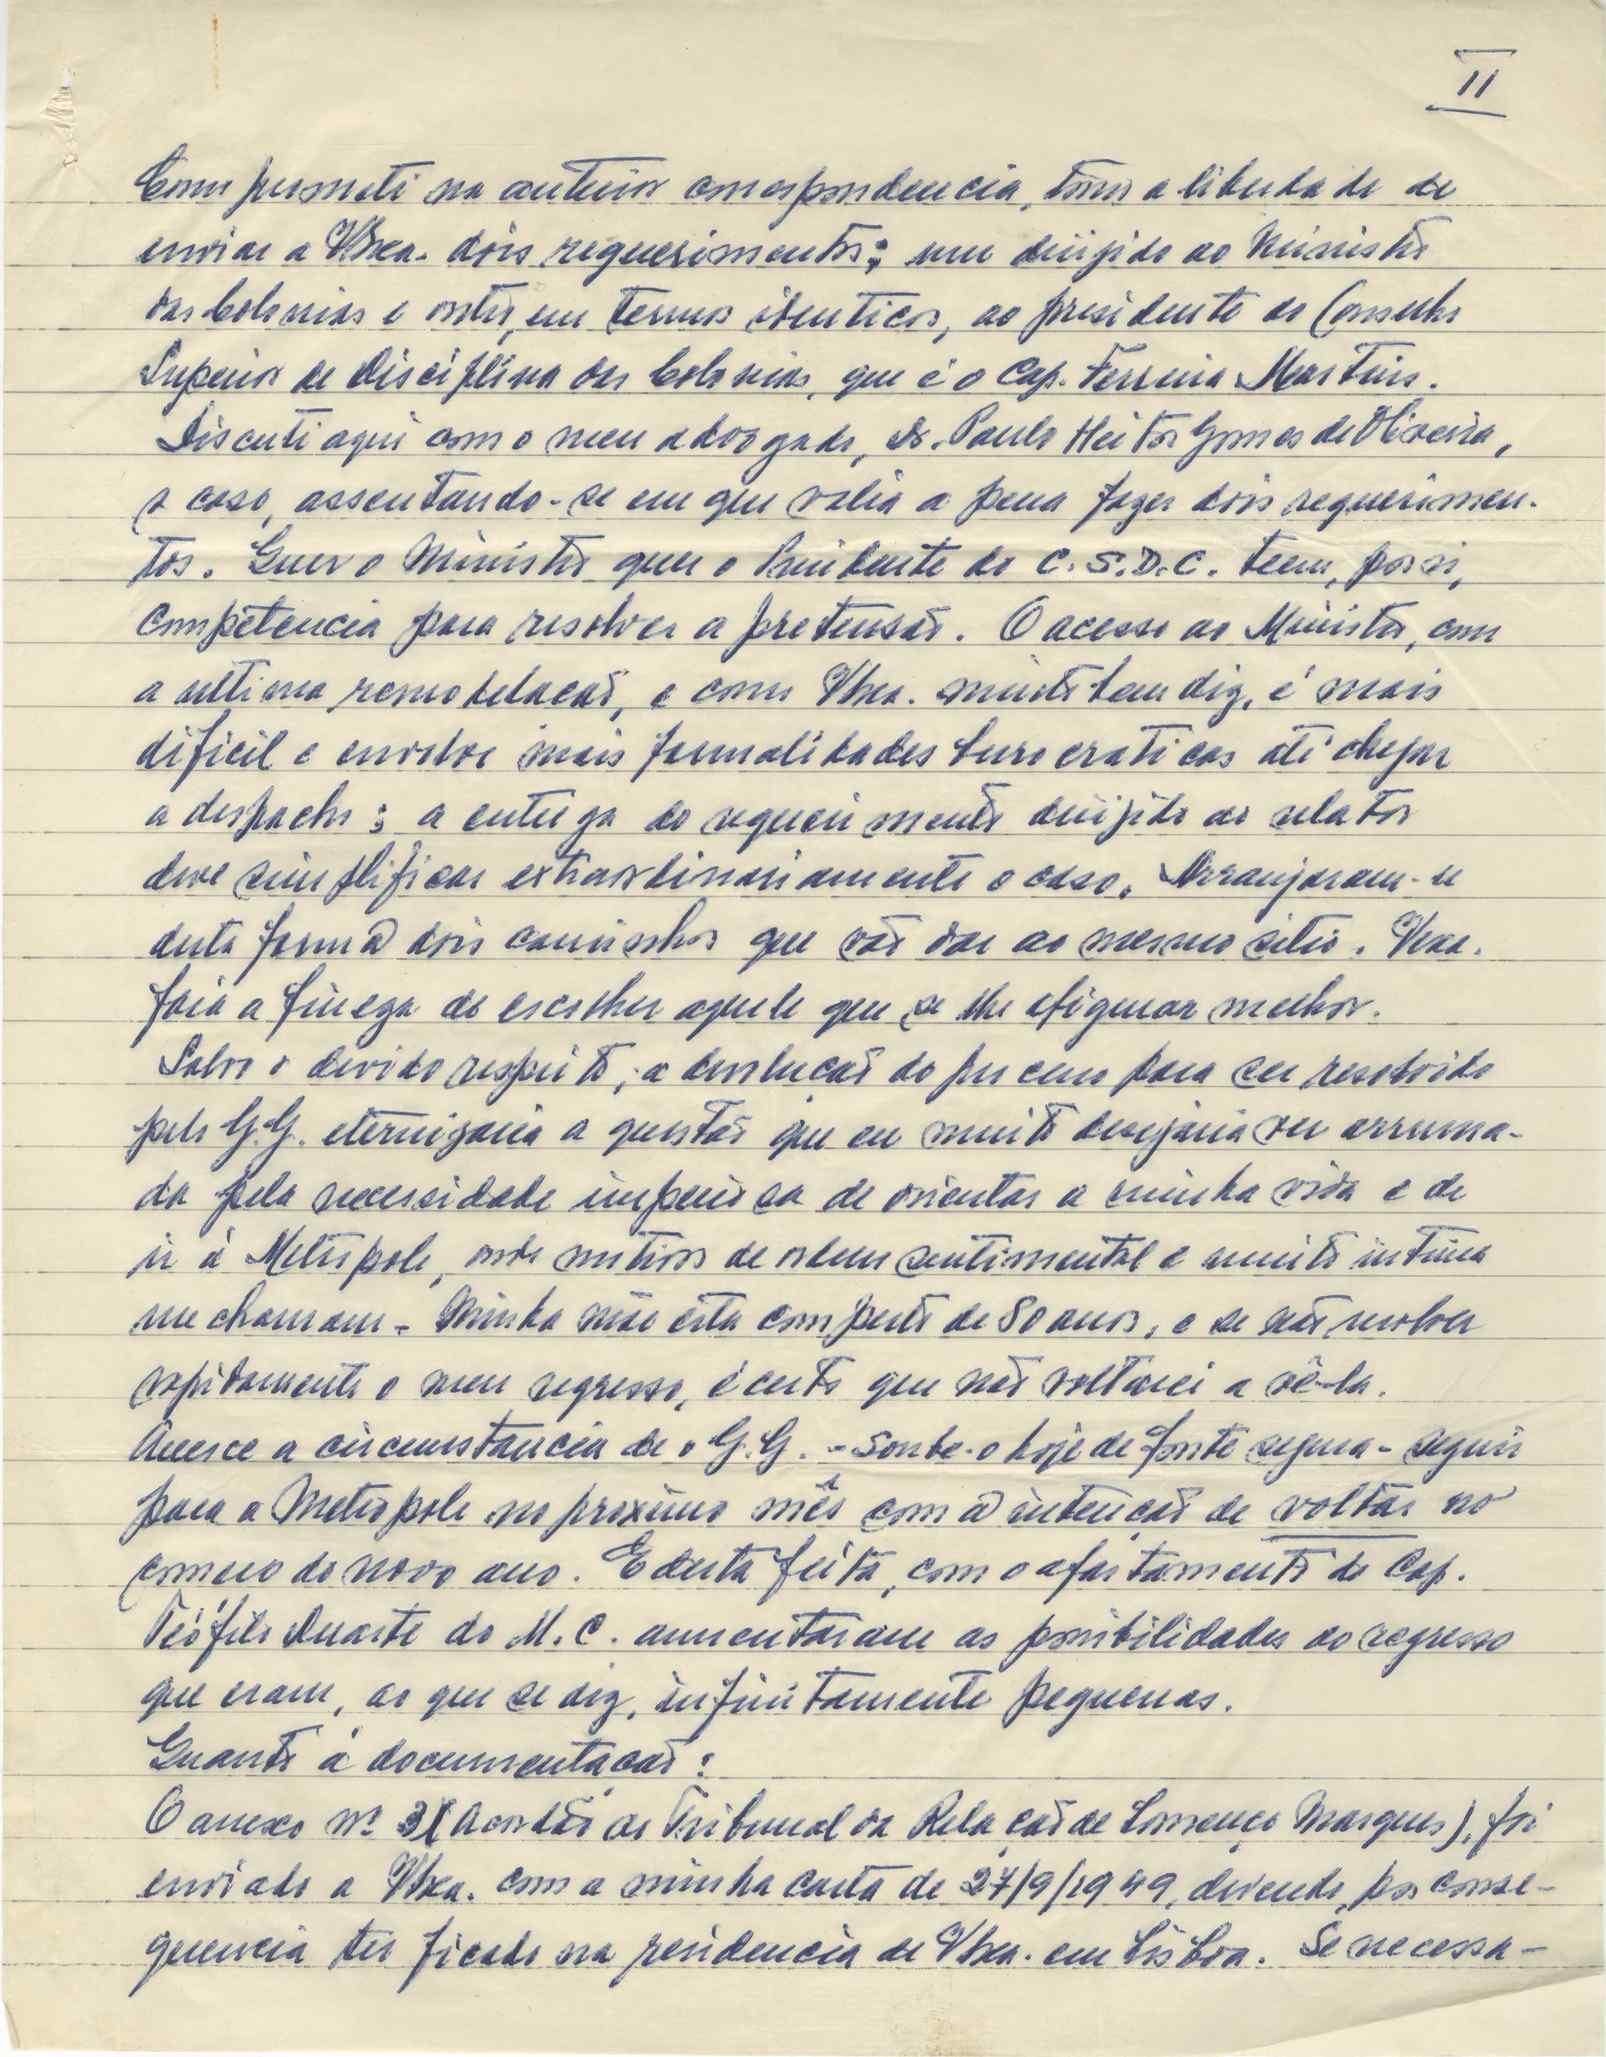 II
Como prometi na anterior correspondencia, tomo a liberdade de
enviar a Vexa. dois requerimentos: um dirijido ao Ministro
das Colonias e outro, em termos identicos, ao presidente do Conselho
Superior de Disciplina das Colonias, que é o Cap. Ferreira Martins.
Discuti aqui com o meu advogado, Dr. Paulo Heitor Gomes de Oliveira,
o caso, assentando-se em que valia a pena fazer dois requerimen-
tos. Quer o Ministro quer o Presidente do C.S.D.C. teem, por si,
competencia para resolver a pretensão. O acesso ao Ministro, com
a ultima remodelacão, e como Vexa. muito bem diz, é mais
dificil e envolve mais formalidades burocraticas até chegar
a despacho; a entrega do requerimento dirijido ao relator
deve simplificar extraordinariamente o caso. Arranjaram-se
desta forma dois caminhos que vão dar ao mesmo sitio. Vexa.
fará a fineza de escolher aquele que se lhe afigurar melhor.
Salvo o devido respeito, a devolução do processo para ser resolvido
pelo G.G. eternizaria a questão que eu muito desejaria ver arruma-
da pela necessidade imperiosa de orientar a minha vida e de
ir á Metropole, onde motivos de ordem sentimental e muito intima
me chamam. Minha mãe está com perto de 80 anos, e se não resolver
rapidamente o meu regresso, é certo que não voltarei a vê-la.
Acresce a circumstancia de o G.G. - Soube-o hoje de fonte segura - seguir
para a Metropole no proximo mês com a intenção de voltar no
começo do novo ano. E desta feita, com o afastamento do Cap.
Teófilo Duarte do M.C. aumentaram as possibilidades do regresso
que eram, ao que se diz, infinitamente pequenas.
Quanto á documentacão:
O anexo nº 3 (Acordão do Tribunal da Relação de Lourenço Marques), foi
enviado a Vexa. com a minha carta de 27/9/1949, devendo, por conse-
quencia ter ficado na residencia de Vexa. em Lisboa. Se necessa-